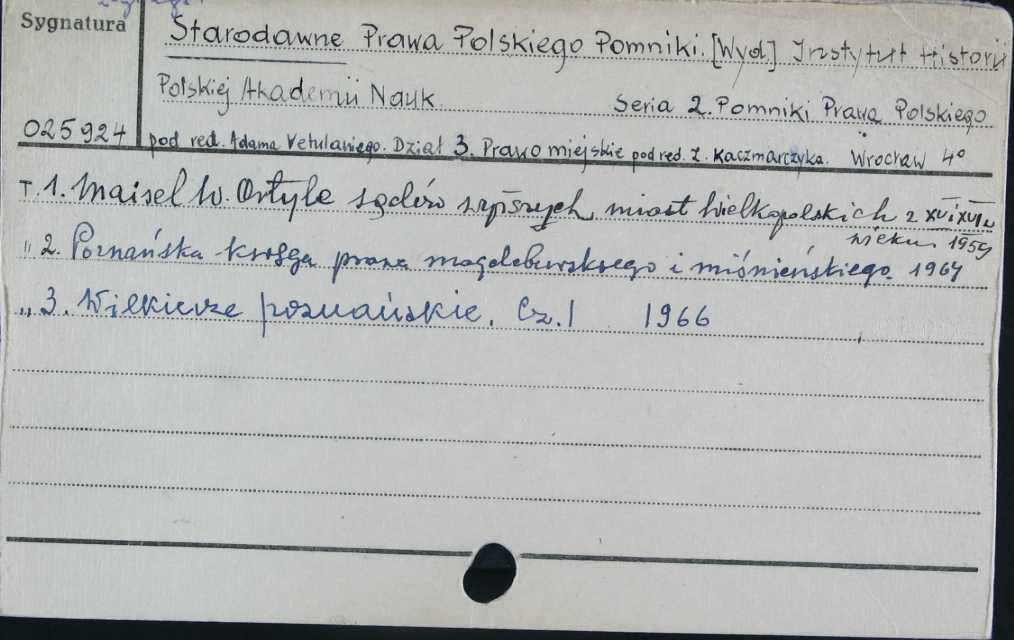 Sygnatura
Starodawne Prawa Polskiego Pomniki. [Wyd.] Instytut Historii
Polskiej Akademii Nauk Seria 2. Pomniki Prawa Polskiego
025924 pod red. Adama Vetulaniego. Dział 3. Prawo miejskie pod red. Z. Kaczmarczyka. Wrocław 4°
T. 1. Maisel W. Ortyle sądów wyższych miast wielkopolskich z XV i XVI w
wieku 1959
" 2. Poznańska księga prawa magdeburskiego i miśnieńskiego. 1964
" 3. Wilkierze poznańskie. Cz. I 1966